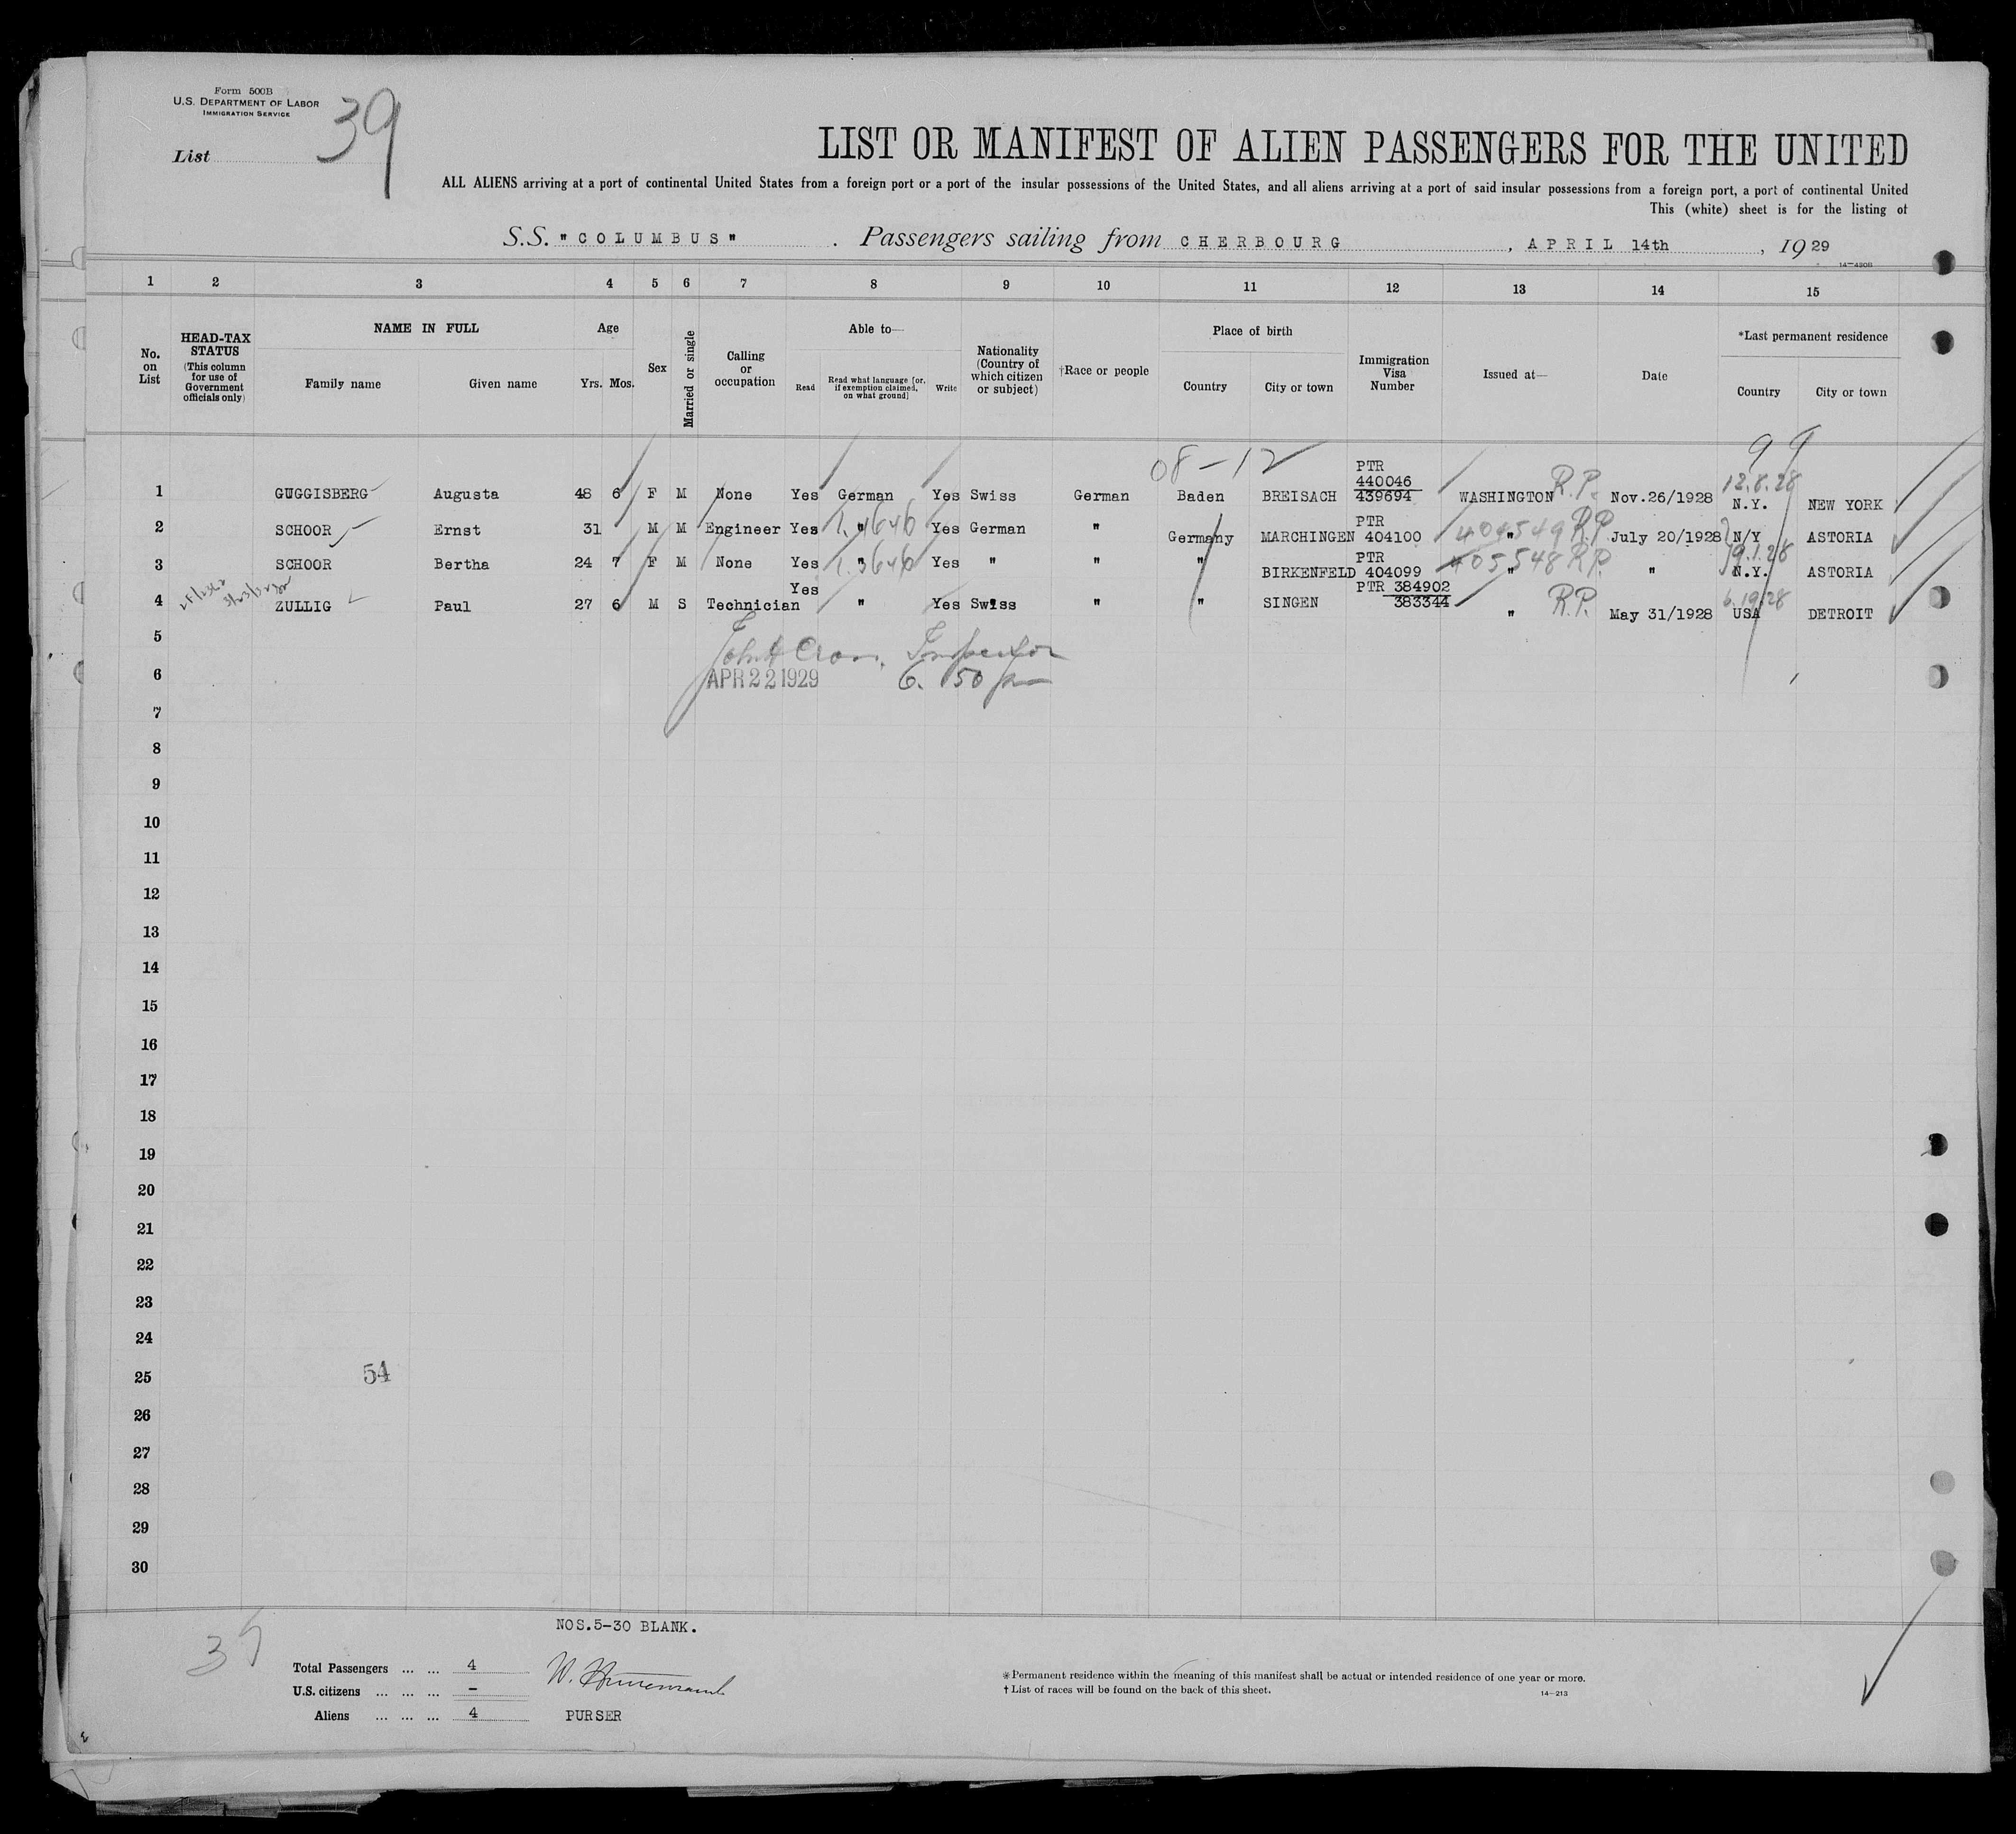 Form 500B
U.S. DEPARTMENT OF LABOR
IMMIGRATION SERVICE
List 39
LIST OR MANIFEST OF ALIEN PASSENGERS FOR THE UNITED
ALL ALIENS arriving at a port of continental United States from a foreign port or a port of the insular possessions of the United States, and all aliens arriving at a port of said insular possessions from a foreign port, a port of continental United
This (white) sheet is for the listing of
S.S. "COLUMBUS" . Passengers sailing from CHERBOURG, APRIL 14th, 1929
14—4206
1 2 3 4 5 6 7 8 9 10 11 12 13 14 15
No. on List
HEAD-TAX STATUS (This column for use of Government officials only)
NAME IN FULL
Family name Given name
Age
Yrs. Mos.
Sex
Married or single
Calling or occupation
Able to—
Read
Read what language [or, if exemption claimed, on what ground]
Write
Nationality (Country of which citizen or subject)
†Race or people
Place of birth
Country City or town
Immigration Visa Number
Issued at—
Date
*Last permanent residence
Country City or town
08-12 99
PTR 440046 12.8.28
1 GUGGISBERG Augusta 48 6 F M None Yes German Yes Swiss German Baden BREISACH 439694 WASHINGTON R.P. Nov.26/1928 N.Y. NEW YORK
PTR
2 SCHOOR Ernst 31 M M Engineer Yes " Yes German " Germany MARCHINGEN 404100 " R.P. July 20/1928 N/Y ASTORIA
PTR 9.1.28
3 SCHOOR Bertha 24 7 F M None Yes " Yes " " " BIRKENFELD 404099 405548 " R.P. " N.Y. ASTORIA
Yes PTR 384902 6.19.28
4 ZULLIG Paul 27 6 M S Technician " Yes Swiss " " SINGEN 383344 " R.P. May 31/1928 USA DETROIT
5
Inspector
6 APR 22 1929 6.50 pm
7
8
9
10
11
12
13
14
15
16
17
18
19
20
21
22
23
24
25 54
26
27
28
29
30
NOS.5-30 BLANK.
39
Total Passengers ... ... 4
U.S. citizens ... ... ... —
Aliens ... ... ... 4
PURSER
*Permanent residence within the meaning of this manifest shall be actual or intended residence of one year or more.
†List of races will be found on the back of this sheet.
14—213